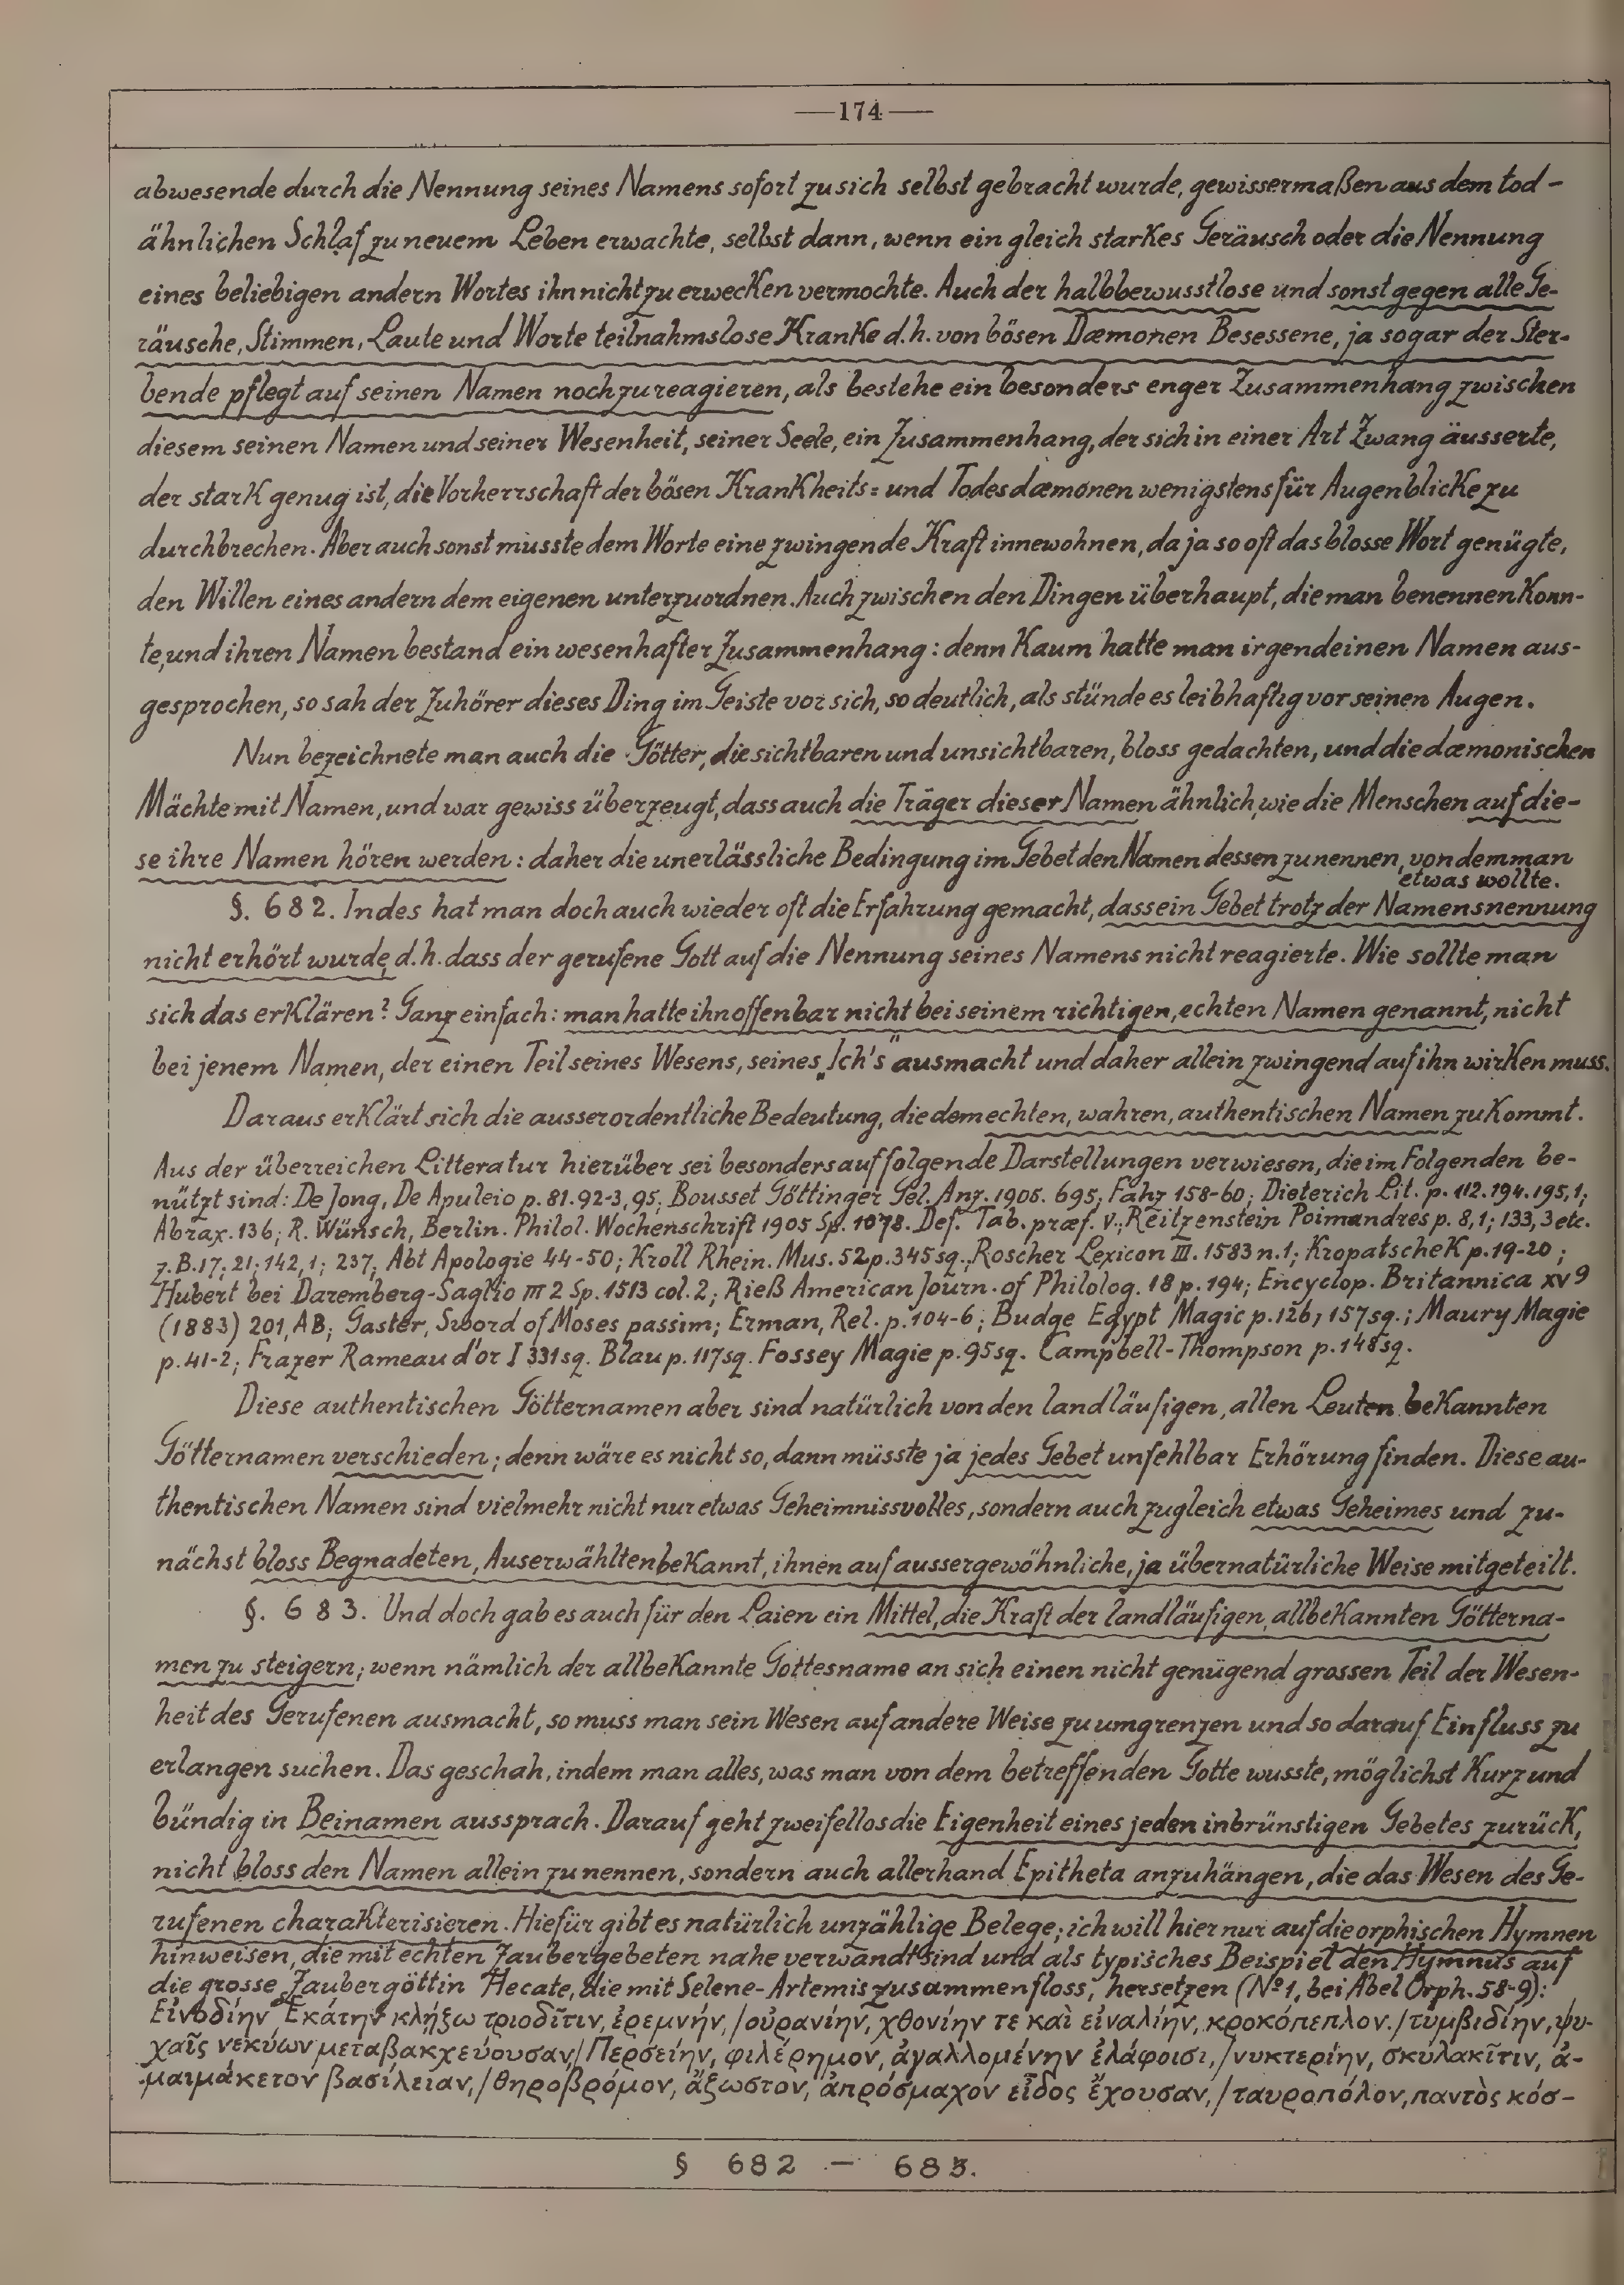 —174—
abwesende durch die Nennung seines Namens sofort zu sich selbst gebracht wurde, gewissermaßen aus dem tod-
ähnlichen Schlaf zu neuem Leben erwachte, selbst dann, wenn ein gleich starkes Geräusch oder die Nennung
eines beliebigen andern Wortes ihn nicht zu erwecken vermochte. Auch der halbbewusstlose und sonst gegen alle Ge-
räusche, Stimmen, Laute und Worte teilnahmslose Kranke d.h. von bösen Dæmonen Besessene, ja sogar der Ster-
bende pflegt auf seinen Namen noch zu reagieren, als bestehe ein besonders enger Zusammenhang zwischen
diesem seinen Namen und seiner Wesenheit, seiner Seele, ein Zusammenhang, der sich in einer Art Zwang äusserte,
der stark genug ist, die Vorherrschaft der bösen Krankheits= und Todesdæmonen wenigstens für Augenblicke zu
durchbrechen. Aber auch sonst musste dem Worte eine zwingende Kraft innewohnen, da ja so oft das blosse Wort genügte,
den Willen eines andern dem eigenen unterzuordnen. Auch zwischen den Dingen überhaupt, die man benennen konn-
te, und ihren Namen bestand ein wesenhafter Zusammenhang: denn kaum hatte man irgendeinen Namen aus-
gesprochen, so sah der Zuhörer dieses Ding im Geiste vor sich, so deutlich, als stünde es leibhaftig vor seinen Augen.
Nun bezeichnete man auch die Götter, die sichtbaren und unsichtbaren, bloss gedachten, und die dæmonischen
Mächte mit Namen, und war gewiss überzeugt, dass auch die Träger dieser Namen ähnlich, wie die Menschen auf die-
se ihre Namen hören werden: daher die unerlässliche Bedingung im Gebet den Namen dessen zu nennen, von dem man
etwas wollte.
§. 682. Indes hat man doch auch wieder oft die Erfahrung gemacht, dass ein Gebet trotz der Namensnennung
nicht erhört wurde, d.h. dass der gerufene Gott auf die Nennung seines Namens nicht reagierte. Wie sollte man
sich das erklären? Ganz einfach: man hatte ihn offenbar nicht bei seinem richtigen, echten Namen genannt, nicht
bei jenem Namen, der einen Teil seines Wesens, seines „Ich's" ausmacht und daher allein zwingend auf ihn wirken muss.
Daraus erklärt sich die ausserordentliche Bedeutung, die dem echten, wahren, authentischen Namen zukommt.
Aus der überreichen Litteratur hierüber sei besonders auf folgende Darstellungen verwiesen, die im Folgenden be-
nützt sind: De Jong, De Apuleio p. 81. 92-3, 95; Bousset Göttinger Gel. Anz. 1905. 695; Fahz 158-60; Dieterich Lit. p. 112. 194. 195,1;
Abrax. 136; R. Wünsch, Berlin. Philol. Wochenschrift 1905 Sp. 1078. Def. Tab. præf. V; Reitzenstein Poimandres p. 8,1; 133,3 etc.
z.B. 17, 21; 142,1; 237; Abt Apologie 44-50; Kroll Rhein. Mus. 52 p. 345 sq.; Roscher Lexicon III. 1583 n. 1; Kropatschek p. 19-20;
Hubert bei Daremberg-Saglio III 2 Sp. 1513 col. 2; Rieß American Journ. of Philolog. 18 p. 194; Encyclop. Britannica XV 9
(1883) 201, AB; Gaster, Sword of Moses passim; Erman, Rel. p. 104-6; Budge Egypt Magic p. 126, 157 sq.; Maury Magie
p. 41-2; Frazer Rameau d'or I 331 sq. Blau p. 117 sq. Fossey Magie p. 95 sq. Campbell-Thompson p. 148 sq.
Diese authentischen Götternamen aber sind natürlich von den landläufigen, allen Leuten bekannten
Götternamen verschieden; denn wäre es nicht so, dann müsste ja jedes Gebet unfehlbar Erhörung finden. Diese au-
thentischen Namen sind vielmehr nicht nur etwas Geheimnissvolles, sondern auch zugleich etwas Geheimes und zu-
nächst bloss Begnadeten, Auserwählten bekannt, ihnen auf aussergewöhnliche, ja übernatürliche Weise mitgeteilt.
§. 683. Und doch gab es auch für den Laien ein Mittel, die Kraft der landläufigen, allbekannten Götterna-
men zu steigern; wenn nämlich der allbekannte Gottesname an sich einen nicht genügend grossen Teil der Wesen-
heit des Gerufenen ausmacht, so muss man sein Wesen auf andere Weise zu umgrenzen und so darauf Einfluss zu
erlangen suchen. Das geschah, indem man alles, was man von dem betreffenden Gotte wusste, möglichst kurz und
bündig in Beinamen aussprach. Darauf geht zweifellos die Eigenheit eines jeden inbrünstigen Gebetes zurück,
nicht bloss den Namen allein zu nennen, sondern auch allerhand Epitheta anzuhängen, die das Wesen des Ge-
rufenen charakterisieren. Hiefür gibt es natürlich unzählige Belege; ich will hier nur auf die orphischen Hymnen
hinweisen, die mit echten Zaubergebeten nahe verwandt sind und als typisches Beispiel den Hymnus auf
die grosse Zaubergöttin Hecate, die mit Selene-Artemis zusammenfloss, hersetzen (No 1, bei Abel Orph. 58-9):
Εἰνοδίην Ἑκάτην κλῄξω τριοδῖτιν, ἐρεμνήν, / οὐρανίην, χθονίην τε καὶ εἰναλίην, κροκόπεπλον. / τυμβιδίην, ψυ-
χαῖς νεκύων μεταβακχεύουσαν, / Περσείην, φιλέρημον, ἀγαλλομένην ἐλάφοισι, / νυκτερίην, σκυλακῖτιν, ἀ-
μαιμάκετον βασίλειαν, / θηροβρόμον, ἄξωστον, ἀπρόσμαχον εἶδος ἔχουσαν, / ταυροπόλον, παντὸς κόσ-
§ 682 — 683.